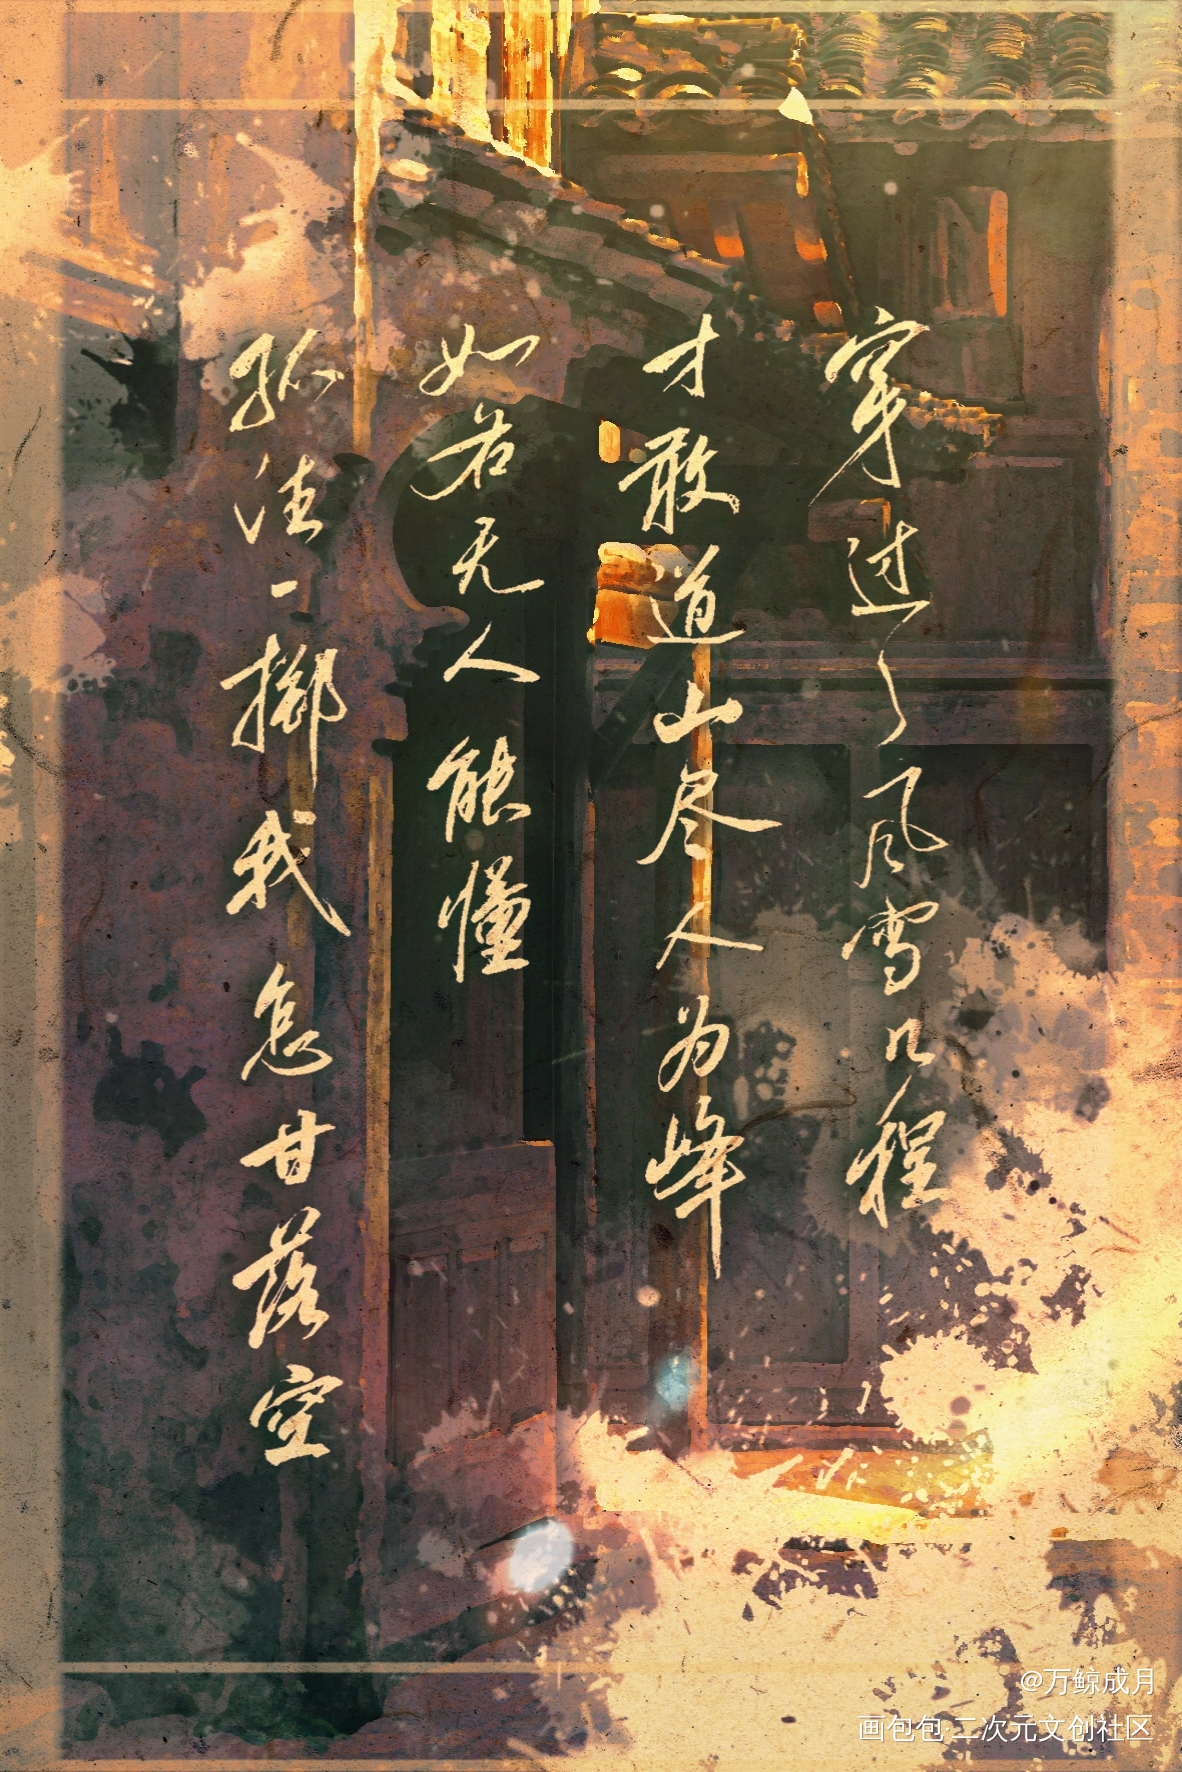 穿过了风雪几程
才敢道山尽人为峰
如若无人能懂
孤注一掷我怎甘落空
@万鲸成月
画包包·二次元文创社区